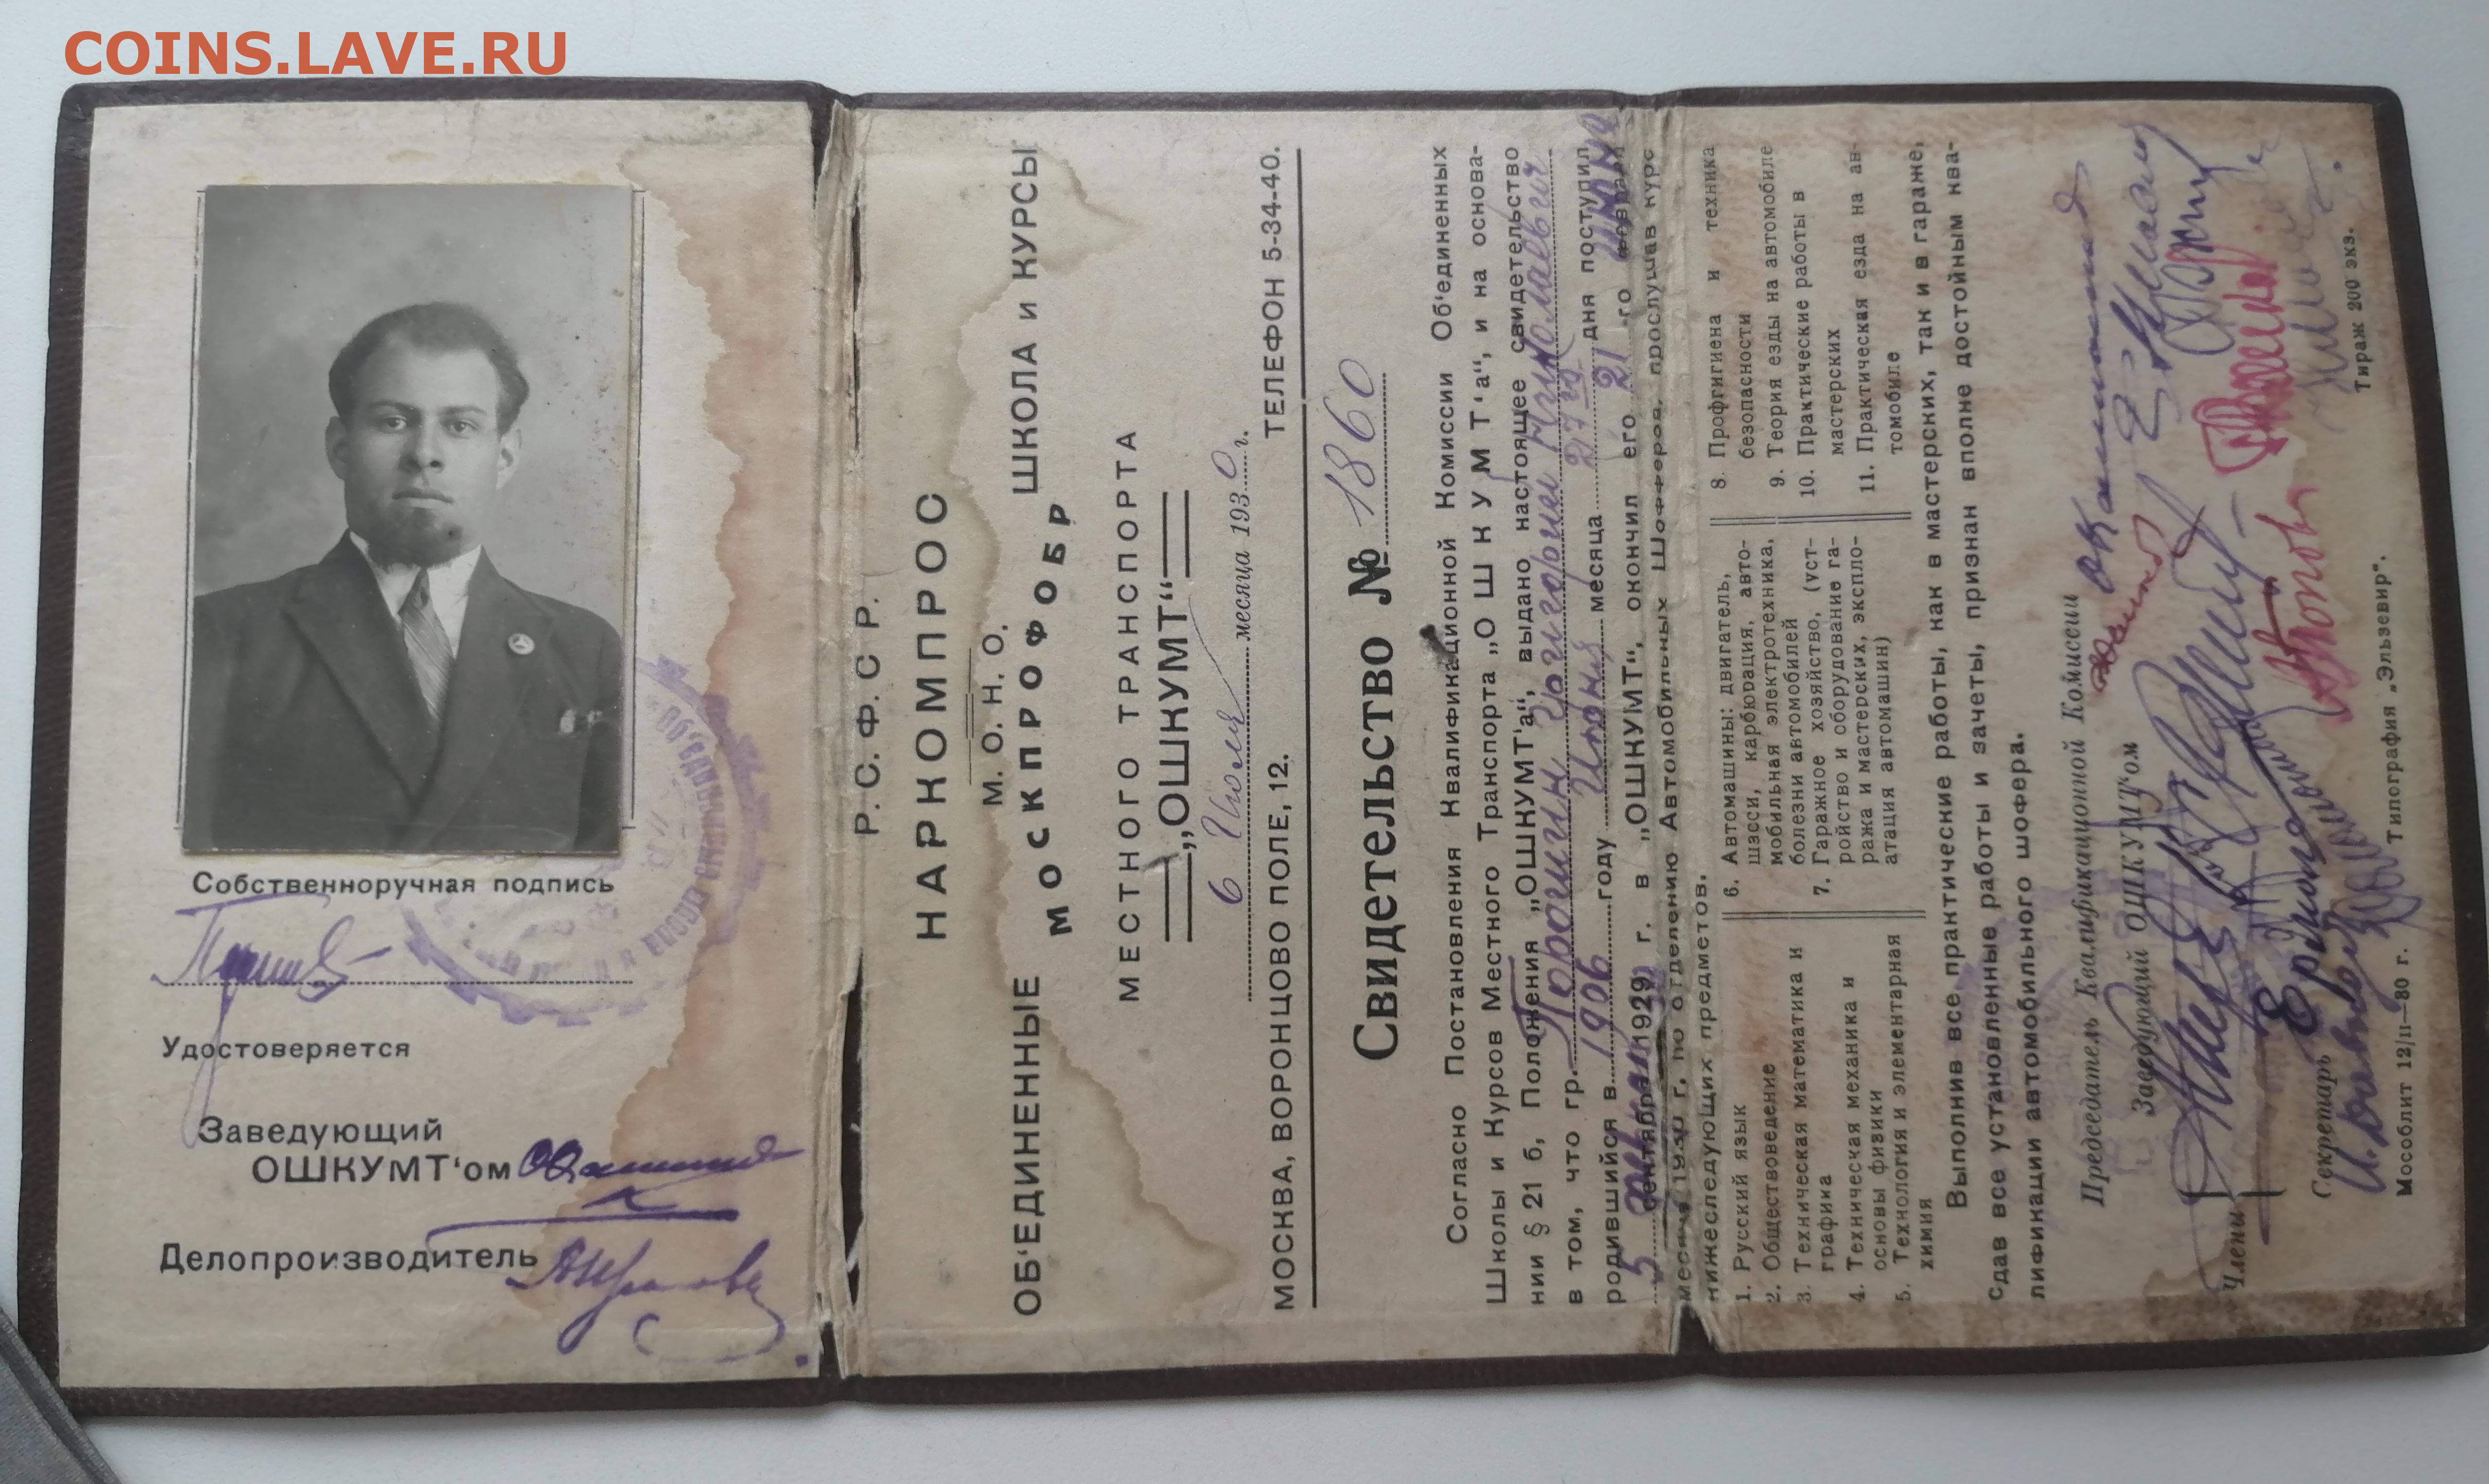 COINS.LAVE.RU
Собственноручная подпись
Удостоверяется
Заведующий
ОШКУМТ‘ом
Делопроизводитель
Р. С. Ф. С Р.
НАРКОМПРОС
М. О. Н. О.
МОСКПРОФОБР
ОБ‘ЕДИНЕННЫЕ ШКОЛА и КУРСЫ
МЕСТНОГО ТРАНСПОРТА
„ОШКУМТ“
6 Июля месяца 1930 г.
МОСКВА, ВОРОНЦОВО ПОЛЕ, 12. ТЕЛЕФОН 5-34-40.
Свидетельство № 1860
Согласно Постановления Квалификационной Комиссии Об‘единенных
Школы и Курсов Местного Транспорта „ОШКУМТ‘а“, и на основа-
нии § 21 б, Положения „ОШКУМТ‘а“, выдано настоящее свидетельство
в том, что гр. Григорий Николаевич
родившийся в 1906 году Июня месяца 27го дня поступил
5 сентября 1929 г. в „ОШКУМТ“, окончил его 21 -го февраля
месяца 1930 г. по отделению Автомобильных Шофферов, прослушав курс
нижеследующих предметов.
1. Русский язык
2. Обществоведение
3. Техническая математика и
графика
4. Техническая механика и
основы физики
5. Технология и элементарная
химия
6. Автомашины: двигатель,
шасси, карбюрация, авто-
мобильная электротехника,
болезни автомобилей
7. Гаражное хозяйство, (уст-
ройство и оборудование га-
ража и мастерских, экспло-
атация автомашин)
8. Профгигиена и техника
безопасности
9. Теория езды на автомобиле
10. Практические работы в
мастерских
11. Практическая езда на ав-
томобиле
Выполнив все практические работы, как в мастерских, так и в гараже,
сдав все установленные работы и зачеты, признан вполне достойным ква-
лификации автомобильного шофера.
Председатель Квалификационной Комиссии
Заведующий ОШКУМТ‘ом
Члены
Секретарь
Мособлит 12/11—80 г. Типография „Эльзевир“. Тираж 200 экз.